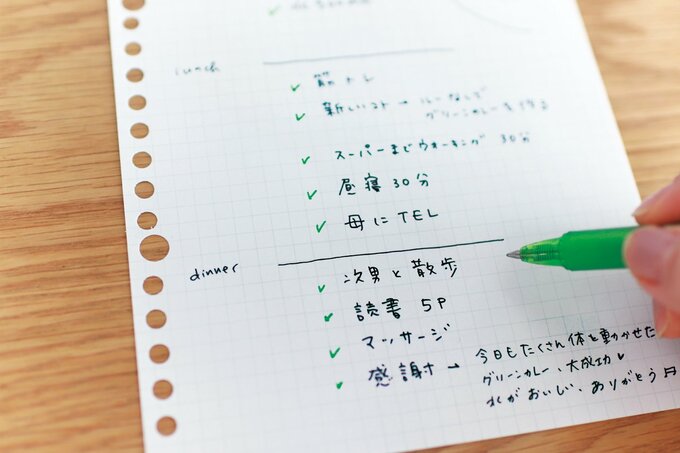 lunch
筋トレ
新しいコト → ルーなしで
グリーンカレーを作る
スーパーまでウォーキング 30分
昼寝 30分
母にTEL
dinner
次男と散歩
読書 5P
マッサージ
感謝 → 今日もたくさん体を動かせた
グリーンカレー、大成功♥
水がおいしい、ありがとう